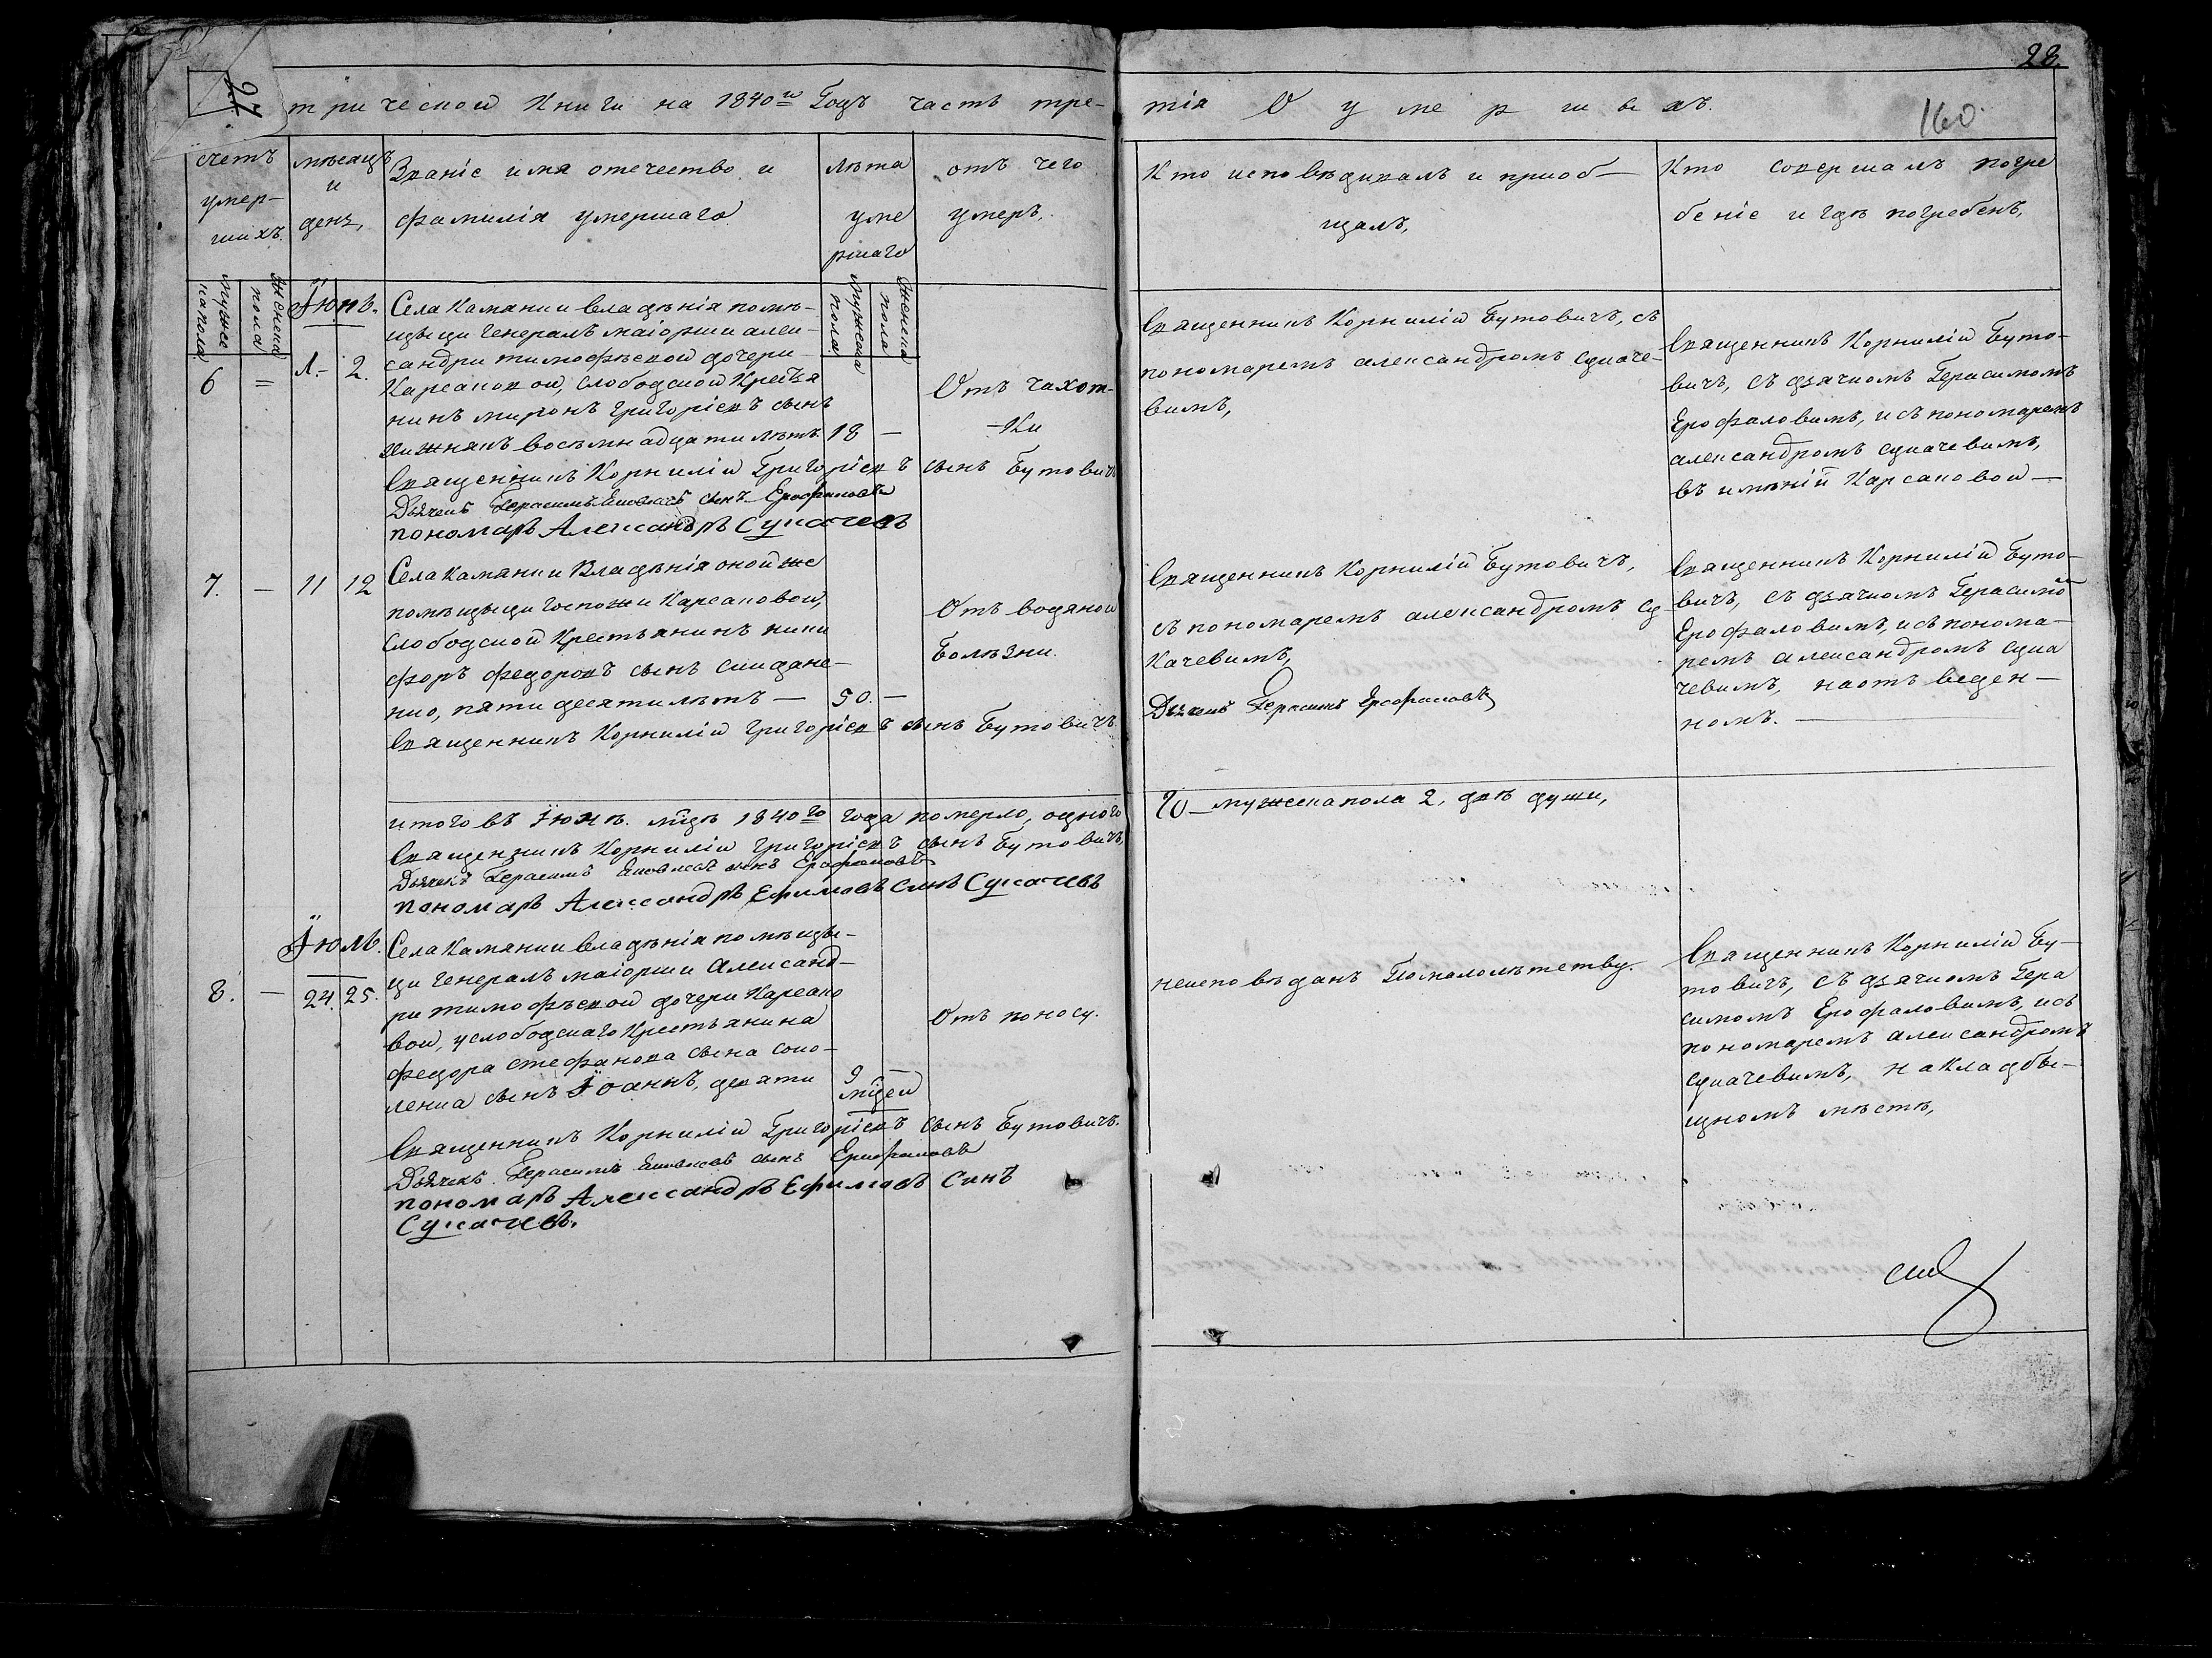 27
28
160
трической Книги на 1840й Годъ часть тре-
тія О умершихъ.
счетъ умер-
шихъ.
мѣсяцъ
и
день,
Званіе имя отечество и
фамилія умершаго
лѣта
уме
ршаго
отъ чего
умеръ.
Кто исповѣдивалъ и приоб-
щалъ,
Кто совершалъ погре
беніе и гдѣ погребенъ,
мужес
капола
женска
пола
Іюнь.
мужска
пола
женска
пола
6
=
1.-
2.
Села Камянки владѣнія помѣ-
щыци Генералъ маіорши алек-
сандри тимофѣевой дочери
Карсаковой, слободской Крестья
нинъ миронъ григоріевъ сынъ
хижнякъ восѣмнадцати лѣтъ. 18 —
Отъ чахот-
-Ки
Священникъ Корнилій Григоріевъ сынъ Бутовичъ
Дьячекъ Герасимъ сынъ Ерофаловъ
пономарь Александръ Сукачевъ
Священникъ Корнилій Бутовичъ, съ
пономаремъ александромъ Сукаче-
вимъ,
Священникъ Корнилій Буто-
вичъ, съ дзячкомъ Герасимомъ
Ерофаловимъ, и съ пономаремъ
александромъ Сукачевимъ,
въ имѣніи Карсаковой —
7.
—
11
12
Села Камянки Владѣнія оной же
помѣщыци госпожи Карсаковой,
Слободской Крестьянинъ ники
форъ федоровъ сынъ скидане-
нко, пяти десяти лѣтъ — 50. —
Отъ водяной
болѣзни.
Священникъ Корнилій Григоріевъ сынъ Бутовичъ
Священникъ Корнилій Бутовичъ,
съ пономаремъ александромъ Су
качевимъ,
Дьячекъ Герасимъ Ерофаловъ
Священникъ Корнилій Буто-
вичъ, съ дзячкомъ Герасимо
Ерофаловимъ, и съ понома-
ремъ александромъ Сука
чевимъ, на отъ веден-
номъ. —
итого въ Іюнѣ мцѣ 1840го года померло, одного
20 — мужеска пола 2, двѣ души,
Священникъ Корнилій Григоріевъ сынъ Бутовичъ,
Дьячекъ Герасимъ сынъ Ерофаловъ
пономарь Александръ Ефимовъ Синъ Сукачевъ
Іюль.
8.
—
24.
25.
Села Камянки владѣнія помѣщы-
ци Генералъ маіорши Александ-
ри тимофѣевой дочери Карсако
вой, услободскаго Крестьянина
федора стефанова сына соко-
ленка сынъ Іоаннъ, девяти
9
мцей
Отъ поносу.
Священникъ Корнилій Григоріевъ сынъ Бутовичъ.
Дьячекъ Герасимъ сынъ Ерофаловъ
пономарь Александръ Ефимовъ Синъ
Сукачевъ.
неисповѣданъ По малолѣтству.
Священникъ Корнилій Бу-
товичъ, съ дзячкомъ Гера
симомъ Ерофаловимъ, и съ
пономаремъ александромъ
Сукачевимъ, на кладбы-
щномъ мѣстѣ,